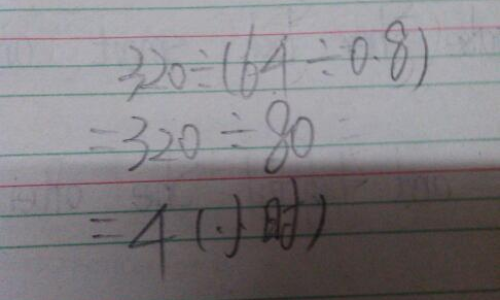 320÷(64÷0.8)
=320÷80
=4(小时)